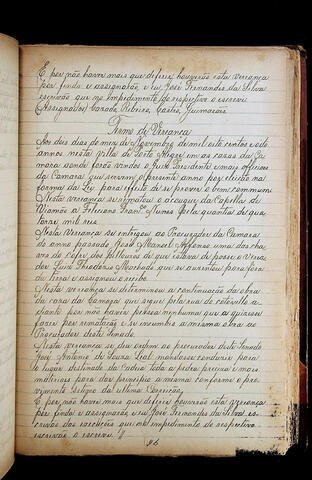 E por não haver mais que deferir houverão esta vereança
por finda e assignarão, e eu José Fernandes da Silva
escrivão que no impedimento do respectivo o escrevi
Assignados Sarada Ribeiro, Castro, Guimarães
Termo de Vereança
Aos dois dias do mez de Novembro de mil oito centos e oito
annos nesta Villa de Porto Alegre em as casas da Ca
mara sendo forão vindos o Juiz Presidente e mais officiaes
da Camara que servem o presente anno por eleição na
forma da Ley para effeito de se prover o bem commum
Nesta vereança se rematou o açougue da Capella de
Viamão a Feliciano Franco Nunes pela quantia de qua
torze mil reis
Nesta vereança se entregou ao Procurador da Camara
do anno passado José Manoel Affonso uma das cha
ves do cofre dos Pillouros de que estava de posse o verea
dor Luiz Theodosio Machado que se ausentou para fora
da terra e assignou o recibo
Nesta vereança se determinou a continuação da obra
da casa da Camara que segue pela rua do cotovello a
chante por não haver pessoa nenhuma que a quizesse
fazer por rematação e se incumbio a mesma obra ao
Procurador deste Senado
Nesta vereança se deu ordem ao procurador deste Senado
José Antonio de Souza Leal mandasse conduzir para
o lugar destinado da Cadea toda a pedra precisa e mais
materiaes para dar principio a mesma conforme o pro
vimento da ultima Correição
E por não haver mais que deferir houverão esta vereança
por finda e assignarão, eu José Fernandes da Silva es
crivão das execuções que no impedimento do respectivo
escrivão o escrevi
96